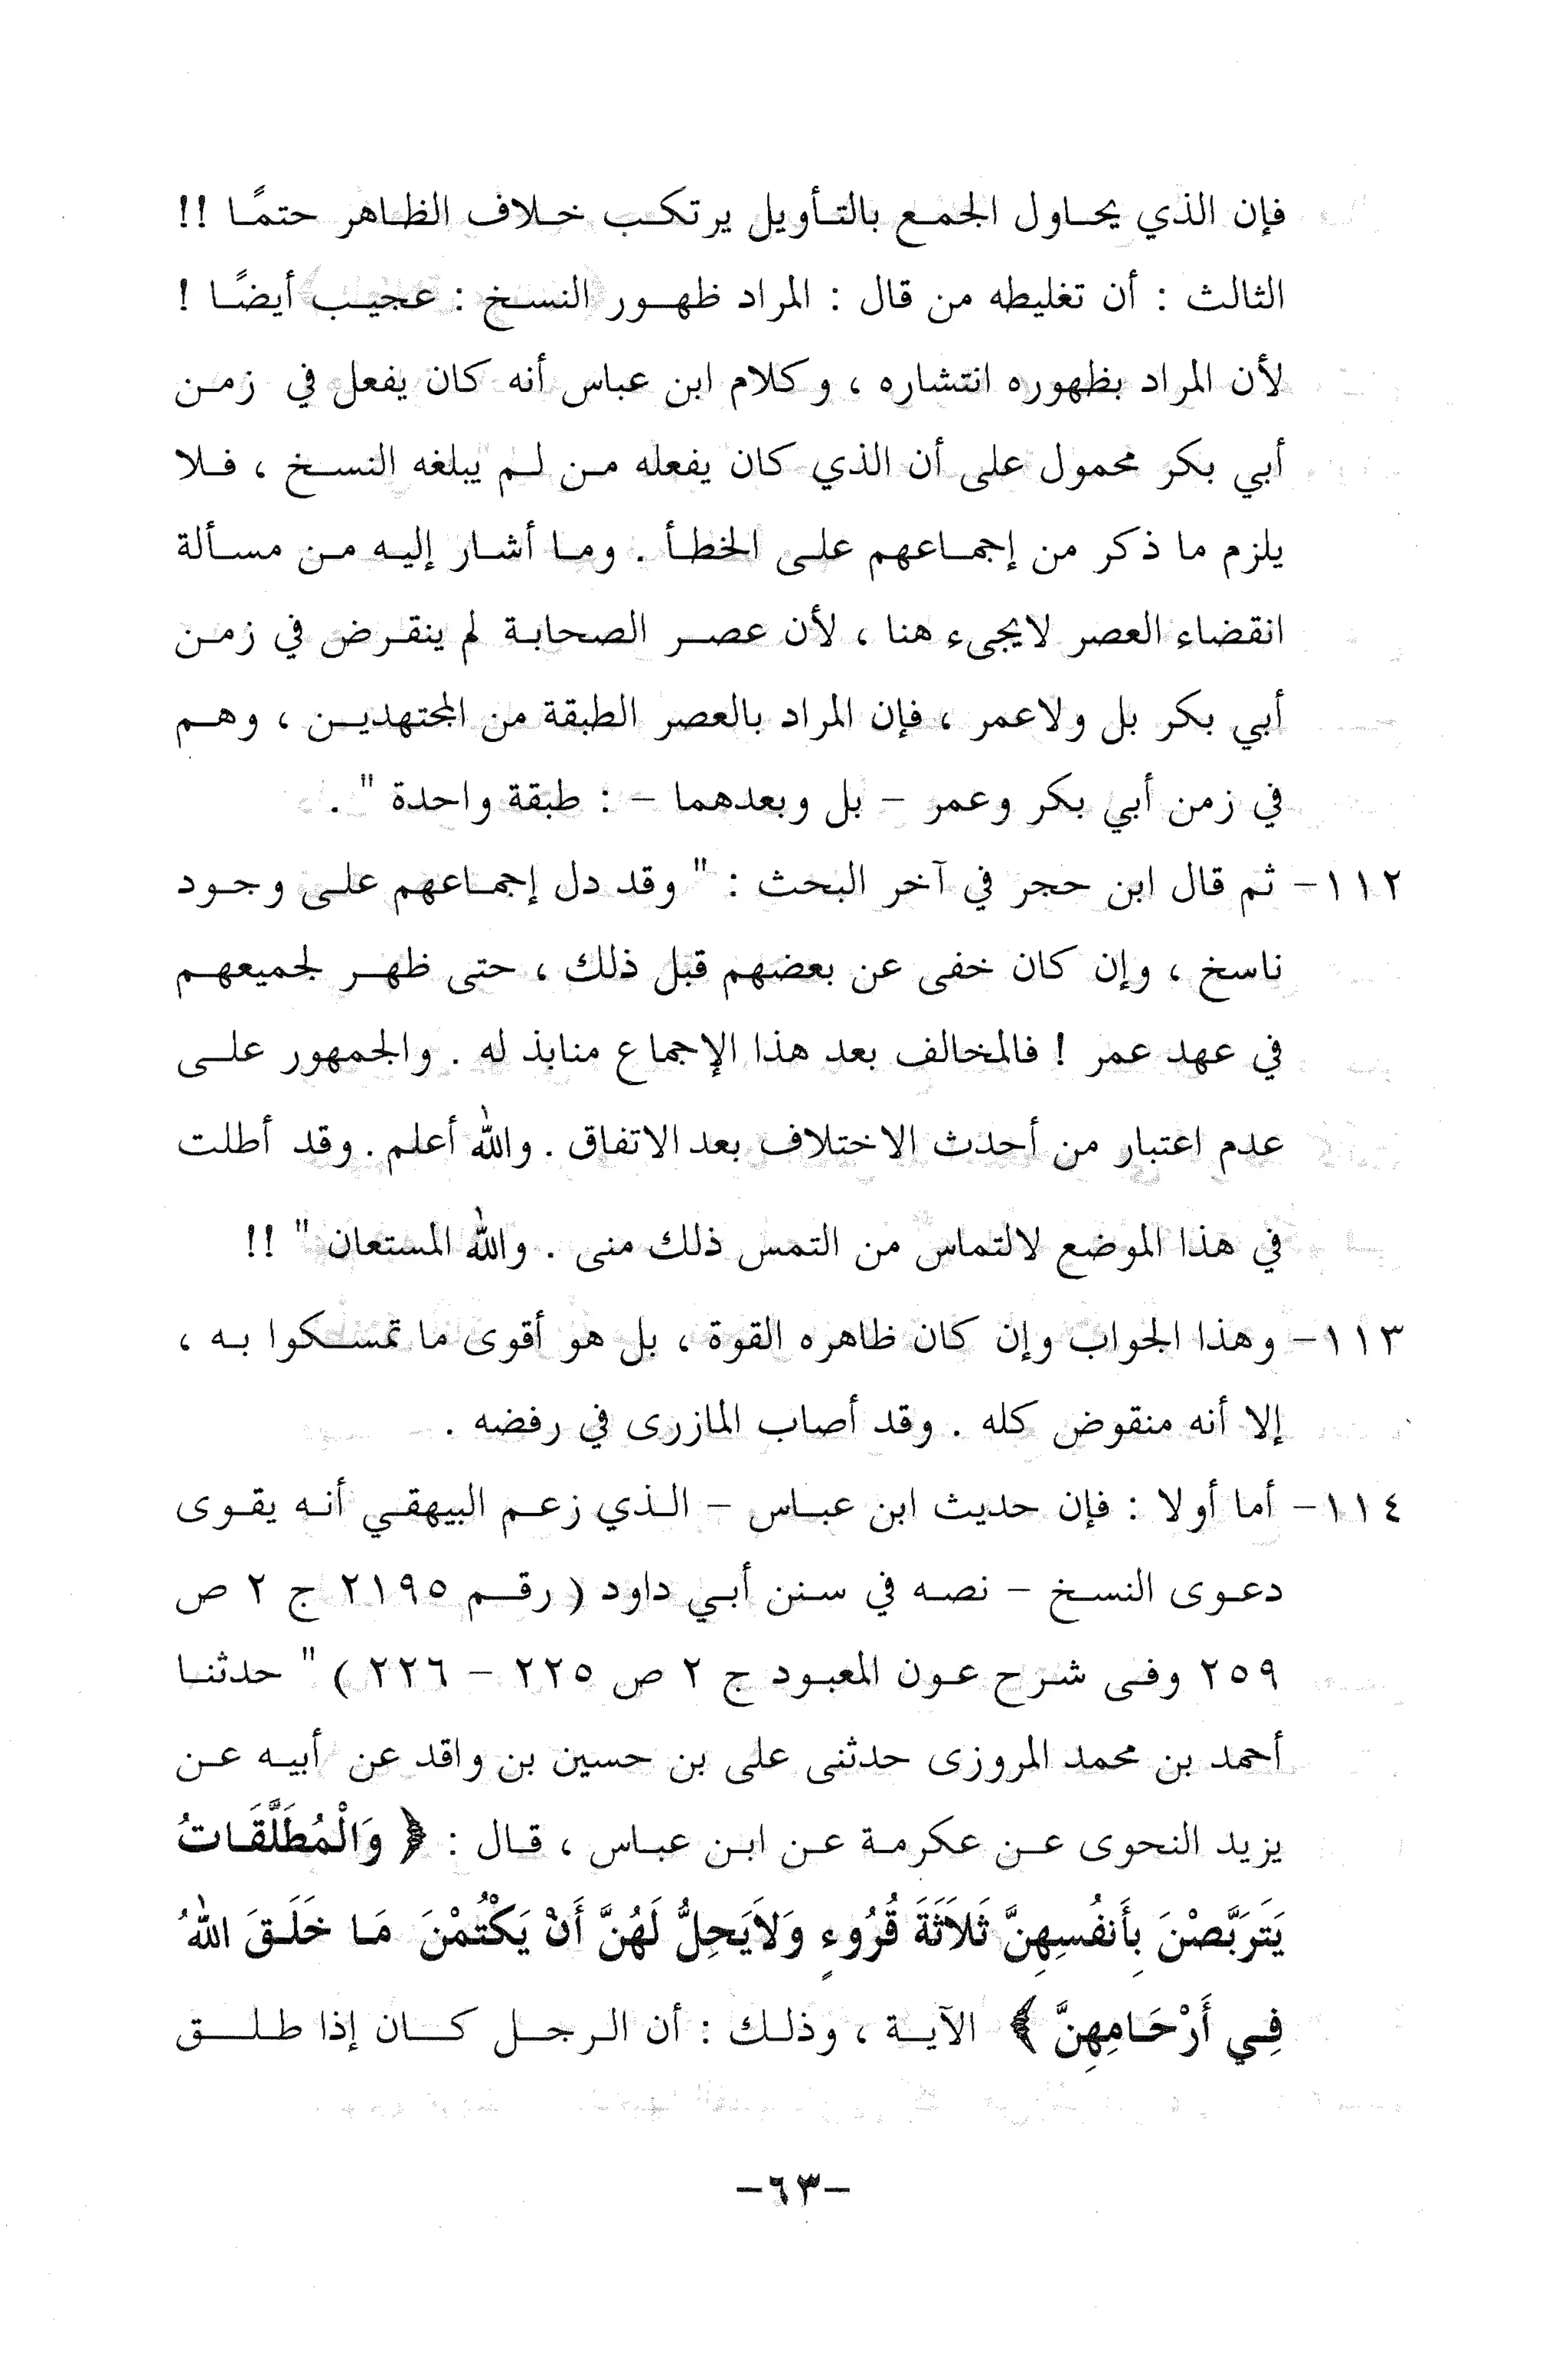 فإن الذي يحاول الجمع بالتأويل يرتكب خلاف الظاهر حتمًا !!
الثالث : أن تغليطه من قال : المراد ظهور النسخ : عجيب أيضًا !
لأن المراد بظهوره انتشاره ، وكلام ابن عباس أنه كان يفعل في زمن
أبي بكر محمول على أن الذي كان يفعله من لم يبلغه النسخ ، فلا
يلزم ما ذكر من إجماعهم على الخطأ . وما أشار إليه من مسألة
انقضاء العصر لايجىء هنا ، لأن عصر الصحابة لم ينقرض في زمن
أبي بكر بل ولاعمر ، فإن المراد بالعصر الطبقة من المجتهدين ، وهم
في زمن أبي بكر وعمر – بل وبعدهما – : طبقة واحدة " .
١١٢– ثم قال ابن حجر في آخر البحث : " وقد دل إجماعهم على وجود
ناسخ ، وإن كان خفى عن بعضهم قبل ذلك ، حتى ظهر لجميعهم
في عهد عمر ! فالمخالف بعد هذا الإجماع منابذ له . والجمهور على
عدم اعتبار من أحدث الاختلاف بعد الاتفاق . والله أعلم . وقد أطلت
في هذا الموضع لالتماس من التمس ذلك منى . والله المستعان " !!
١١٣– وهذا الجواب وإن كان ظاهره القوة ، بل هو أقوى ما تمسكوا به ،
إلا أنه منقوض كله . وقد أصاب المازرى في رفضه .
١١٤– أما أولا : فإن حديث ابن عباس – الذي زعم البيهقي أنه يقوى
دعوى النسخ – نصه في سنن أبي داود ( رقم ٢١٩٥ ج ٢ ص
٢٥٩ وفى شرح عون المعبود ج ٢ ص ٢٢٥ – ٢٢٦ ) " حدثنا
أحمد بن محمد المروزى حدثنى على بن حسين بن واقد عن أبيه عن
يزيد النحوى عن عكرمة عن ابن عباس ، قال : ﴿ وَالْمُطَلَّقَاتُ
يَتَرَبَّصْنَ بِأَنفُسِهِنَّ ثَلاَثَةَ قُرُوءٍ وَلاَيَحِلُّ لَهُنَّ أَنْ يَكْتُمْنَ مَا خَلَقَ اللهُ
فِي أَرْحَامِهِنَّ ﴾ الآية ، وذلك : أن الرجل كان إذا طلق
–٦٣–